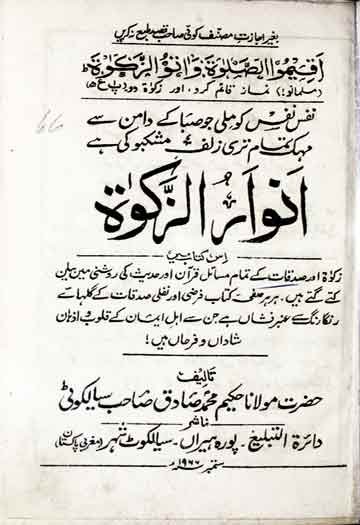 بغیر اجازت مصنف کوئی صاحب قصد طبع نہ کریں
اَقِیْمُوا الصَّلٰوةَ وَاٰتُوا الزَّكٰوةَ ط
(مسلمانو!) نماز قائم کرو۔ اور زکوٰۃ دو
نفس نفس کو ملی جو صبا کے دامن سے
مہک تمام تری زلف مشکبو کی ہے
انوار الزَّکوٰۃ
اس کتاب میں
زکوٰۃ اور صدقات کے تمام مسائل قرآن اور حدیث کی روشنی میں بیان
کئے گئے ہیں۔ ہر ہر صفحہ کتاب فرضی اور نفلی صدقات کے گلہائے
رنگارنگ سے عنبر فشاں ہے جن سے اہل ایمان کے قلوب و اذہان
شاداں و فرحاں ہیں!
تالیف
حضرت مولانا حکیم محمد صادق صاحب سیالکوٹی
ناشر
دائرۃ التبلیغ۔ پورہ ہیراں۔ سیالکوٹ شہر (مغربی پاکستان)
ستمبر ۱۹۶۶ء